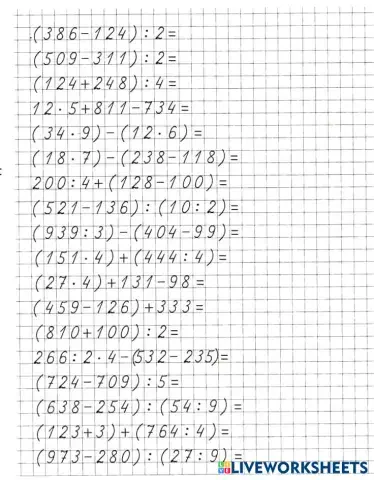 (386-124):2=
(509-311):2=
(124+248):4=
12·5+811-734=
(34·9)-(12·6)=
(18·7)-(238-118)=
200:4+(128-100)=
(521-136):(10:2)=
(939:3)-(404-99)=
(151·4)+(444:4)=
(27·4)+131-98=
(459-126)+333=
(810+100):2=
266:2·4-(532-235)=
(724-709):5=
(638-254):(54:9)=
(123+3)+(764:4)=
(973-280):(27:9)=
LIVEWORKSHEETS